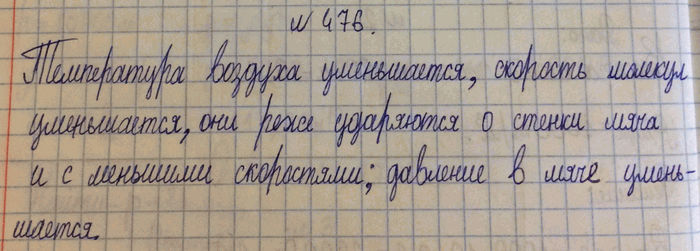 № 476.
Температура воздуха уменьшается, скорость молекул
уменьшается, они реже ударяются о стенки мяча
и с меньшими скоростями; давление в мяче умень-
шается.